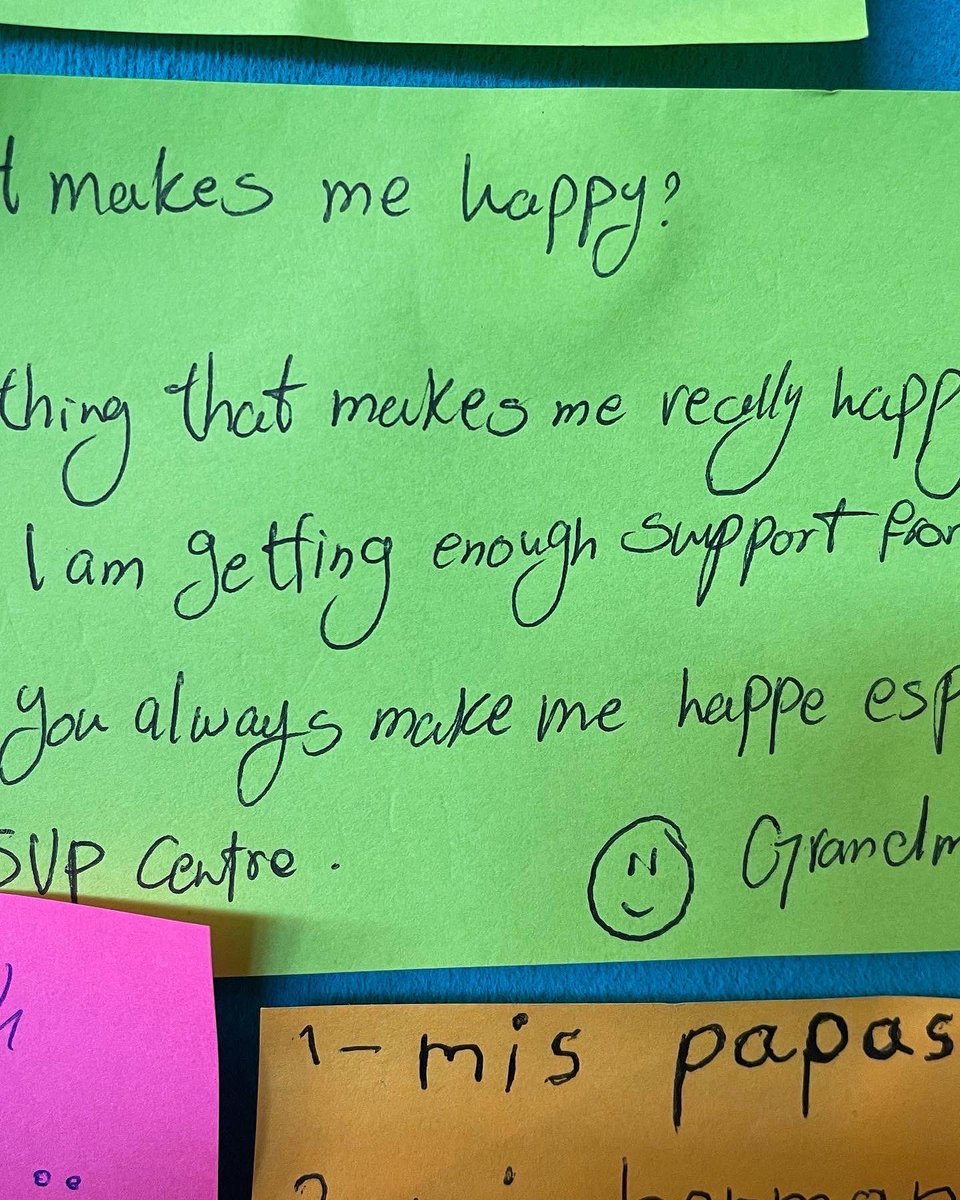 t makes me happy?
thing that makes me really happ
I am getting enough support from
you always make me happe esp
SVP Centre.
Grandm
1- mis papas